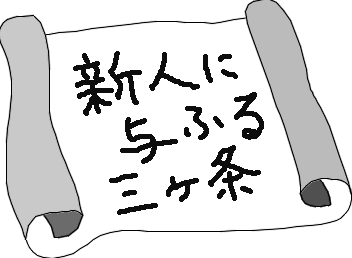 新人に
与ふる
三ヶ条